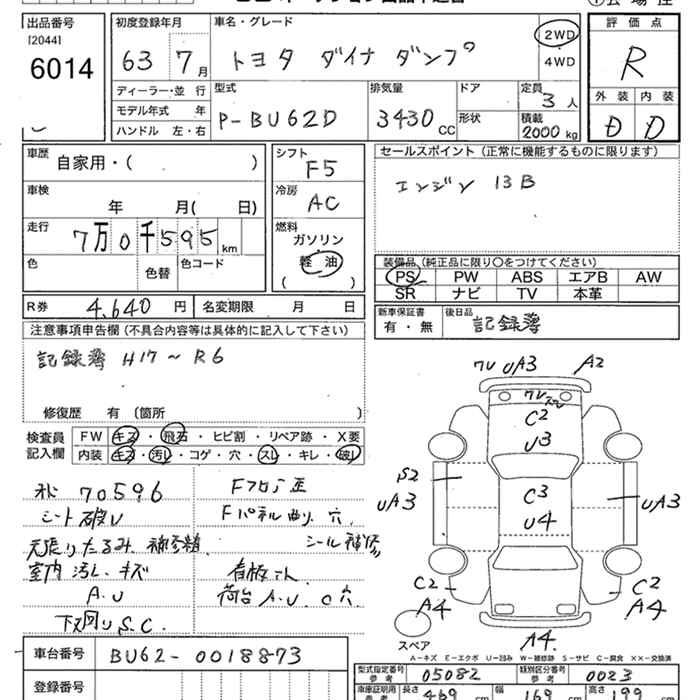 出品番号 初度登録年月 車名・グレード 2WD 評 価 点
[2044]
6014 63 7月 トヨタ ダイナ ダンプ 4WD R
ディーラー・並 行 型式 排気量 ドア 定員 3人 外 装 内 装
モデル年式 年 P-BU62D 3430CC 形状 積載 D D
ハンドル 左・右 2000kg
車歴 自家用・( ) シフト F5 セールスポイント (正常に機能するものに限ります)
車検 年 月( 日) 冷房 AC エンジン 13B
走行 7万0千595km 燃料 ガソリン
色 色替 色コード 軽 油 ( ) 装備品 (純正品に限り○をつけてください)
PS PW ABS エアB AW
SR ナビ TV 本革
R券 4,640円 名変期限 月 日 新車保証書 有・無 後日品 記録簿
注意事項申告欄 (不具合内容等は具体的に記入して下さい)
記録簿 H17~R6
修復歴 有 (箇所 )
検査員 FW キズ・飛石・ヒビ割・リペア跡・X要
記入欄 内装 キズ・汚レ・コゲ・穴・スレ・キレ・破レ
70596 Fフロア歪
シート破レ Fパネル曲り 穴
天張りたるみ 補修精 シール補修
室内汚レ キズ 看板てん
A.U 荷台A.U.C穴
下廻りS.C.
7V UA3 A2
7V
C2
U3
S2 C3
UA3 U4 UA3
C2 C2
A4 A4
スペア A4
A─キズ E─エクボ U─凹み W─補修跡 S─サビ C─腐食 XX─交換済
車台番号 BU62-0018873
登録番号
型式指定番号 参 考 05082 類別区分番号 参 考 0023
車庫証明用 参考 長さ 469cm 幅 169cm 高さ 199cm